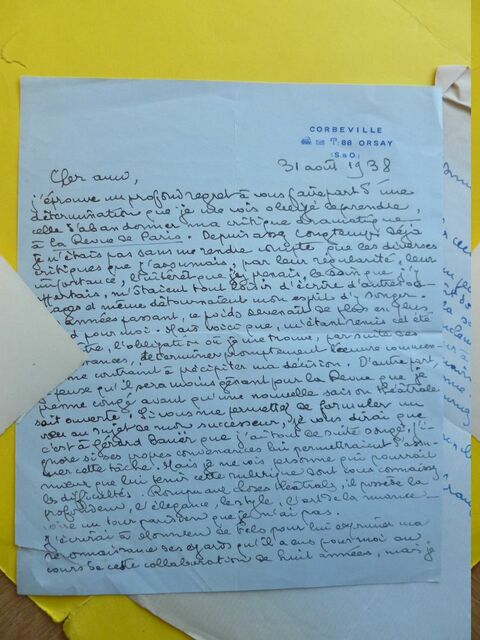 CORBEVILLE
T: 88 ORSAY
(S.&O.)
31 août 1938
Cher ami,
j'éprouve un profond regret à vous faire part d'une
détermination que je me vois obligé de prendre
celle d'abandonner ma critique dramatique
à la Revue de Paris. Depuis assez longtemps déjà
je n'étais pas sans me rendre compte que les diverses
critiques que j'assumais, par leur régularité, leur
importance, l'intérêt que j'y prenais, le soin que j'y
mettais, m'ôtaient tout loisir d'écrire d'autres
et même détournaient mon esprit d'y songer.
années passant, ce poids devenait de plus en plus
pour moi. Mais voici que, m'étant remis cet été
l'obligation où je me trouve, par suite des
de terminer promptement l'œuvre
me contraint à précipiter ma décision. D'autre part,
je pense qu'il sera moins gênant pour la Revue que je
prenne congé avant qu'une nouvelle saison théâtrale
soit ouverte. Si vous me permettez de formuler un
vœu au sujet de mon successeur, je vous dirai que
c'est à Gérard Bauer que j'ai tout de suite songé. J'i-
gnore si ses propres convenances lui permettraient d'assu-
mer cette tâche. Mais je ne vois personne qui pourrait
mieux que lui tenir cette rubrique dont vous connaissez
les difficultés. Rompu aux choses théâtrales, il possède la
profondeur, l'élégance, le style, l'art de la nuance
un tour parisien que je n'ai pas.
J'écrirai à de Fels pour lui exprimer ma
reconnaissance des égards qu'il a eus pour moi au
cours de cette collaboration de huit années, mais je